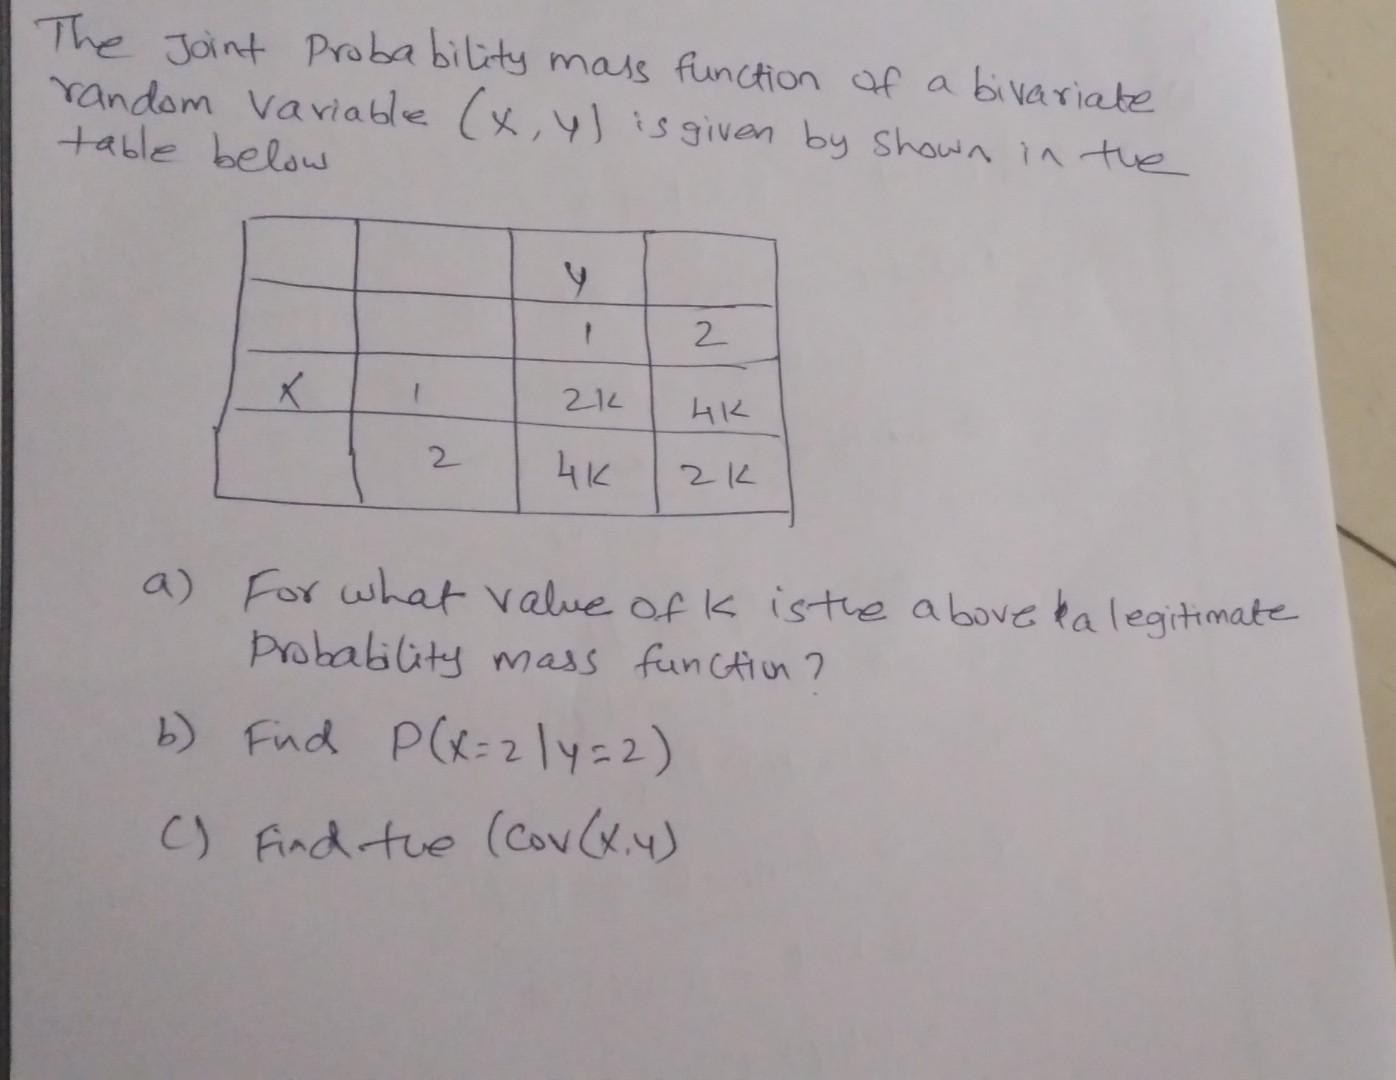 The Joint Probability mass function of a bivariate
random variable (x, y) is given by shown in the
table below
y
1 2
X 1 2K 4K
2 4K 2K
a) For what value of K is the above a legitimate
Probability mass function?
b) Find P(x=2|y=2)
c) Find the (Cov(x,y)